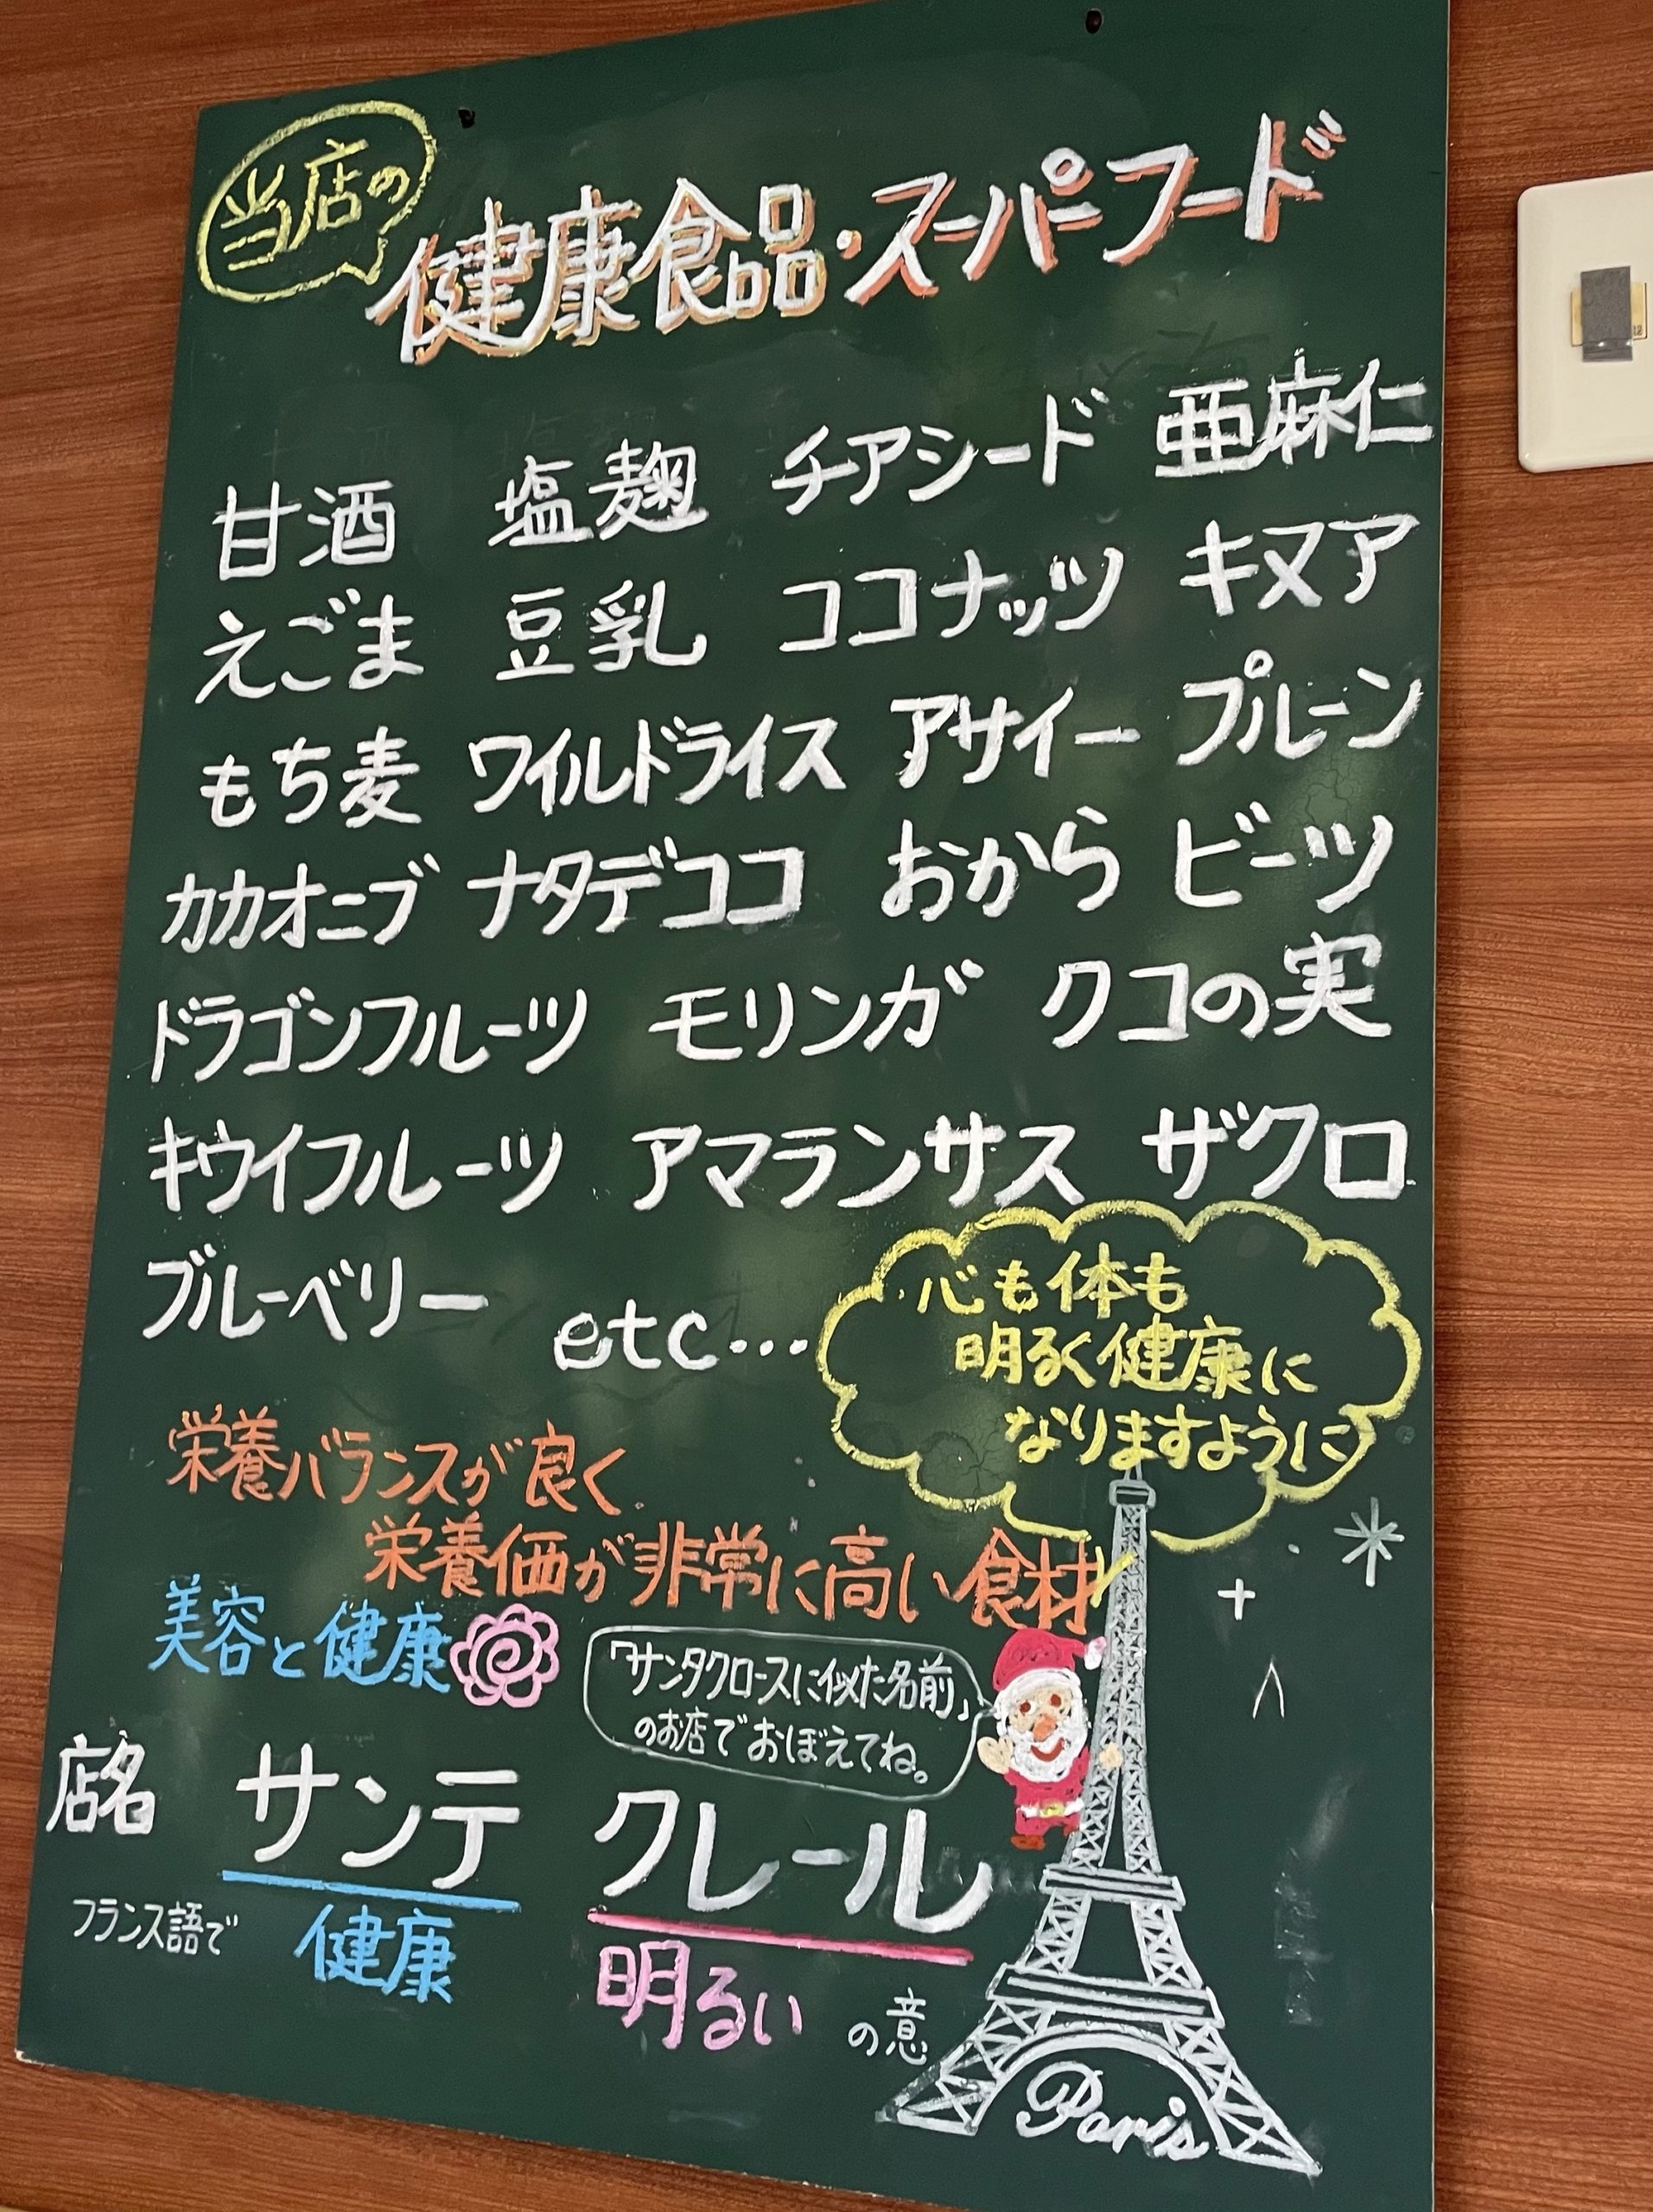 当店の
健康食品・スーパーフード
甘酒 塩麹 チアシード 亜麻仁
えごま 豆乳 ココナッツ キヌア
もち麦 ワイルドライス アサイー プルーン
カカオニブ ナタデココ おから ビーツ
ドラゴンフルーツ モリンガ クコの実
キウイフルーツ アマランサス ザクロ
ブルーベリー etc…
心も体も
明るく健康に
なりますように
栄養バランスが良く
栄養価が非常に高い食材
美容と健康
「サンタクロースに似た名前」
のお店でおぼえてね。
店名 サンテ クレール
フランス語で 健康 明るい の意
Paris